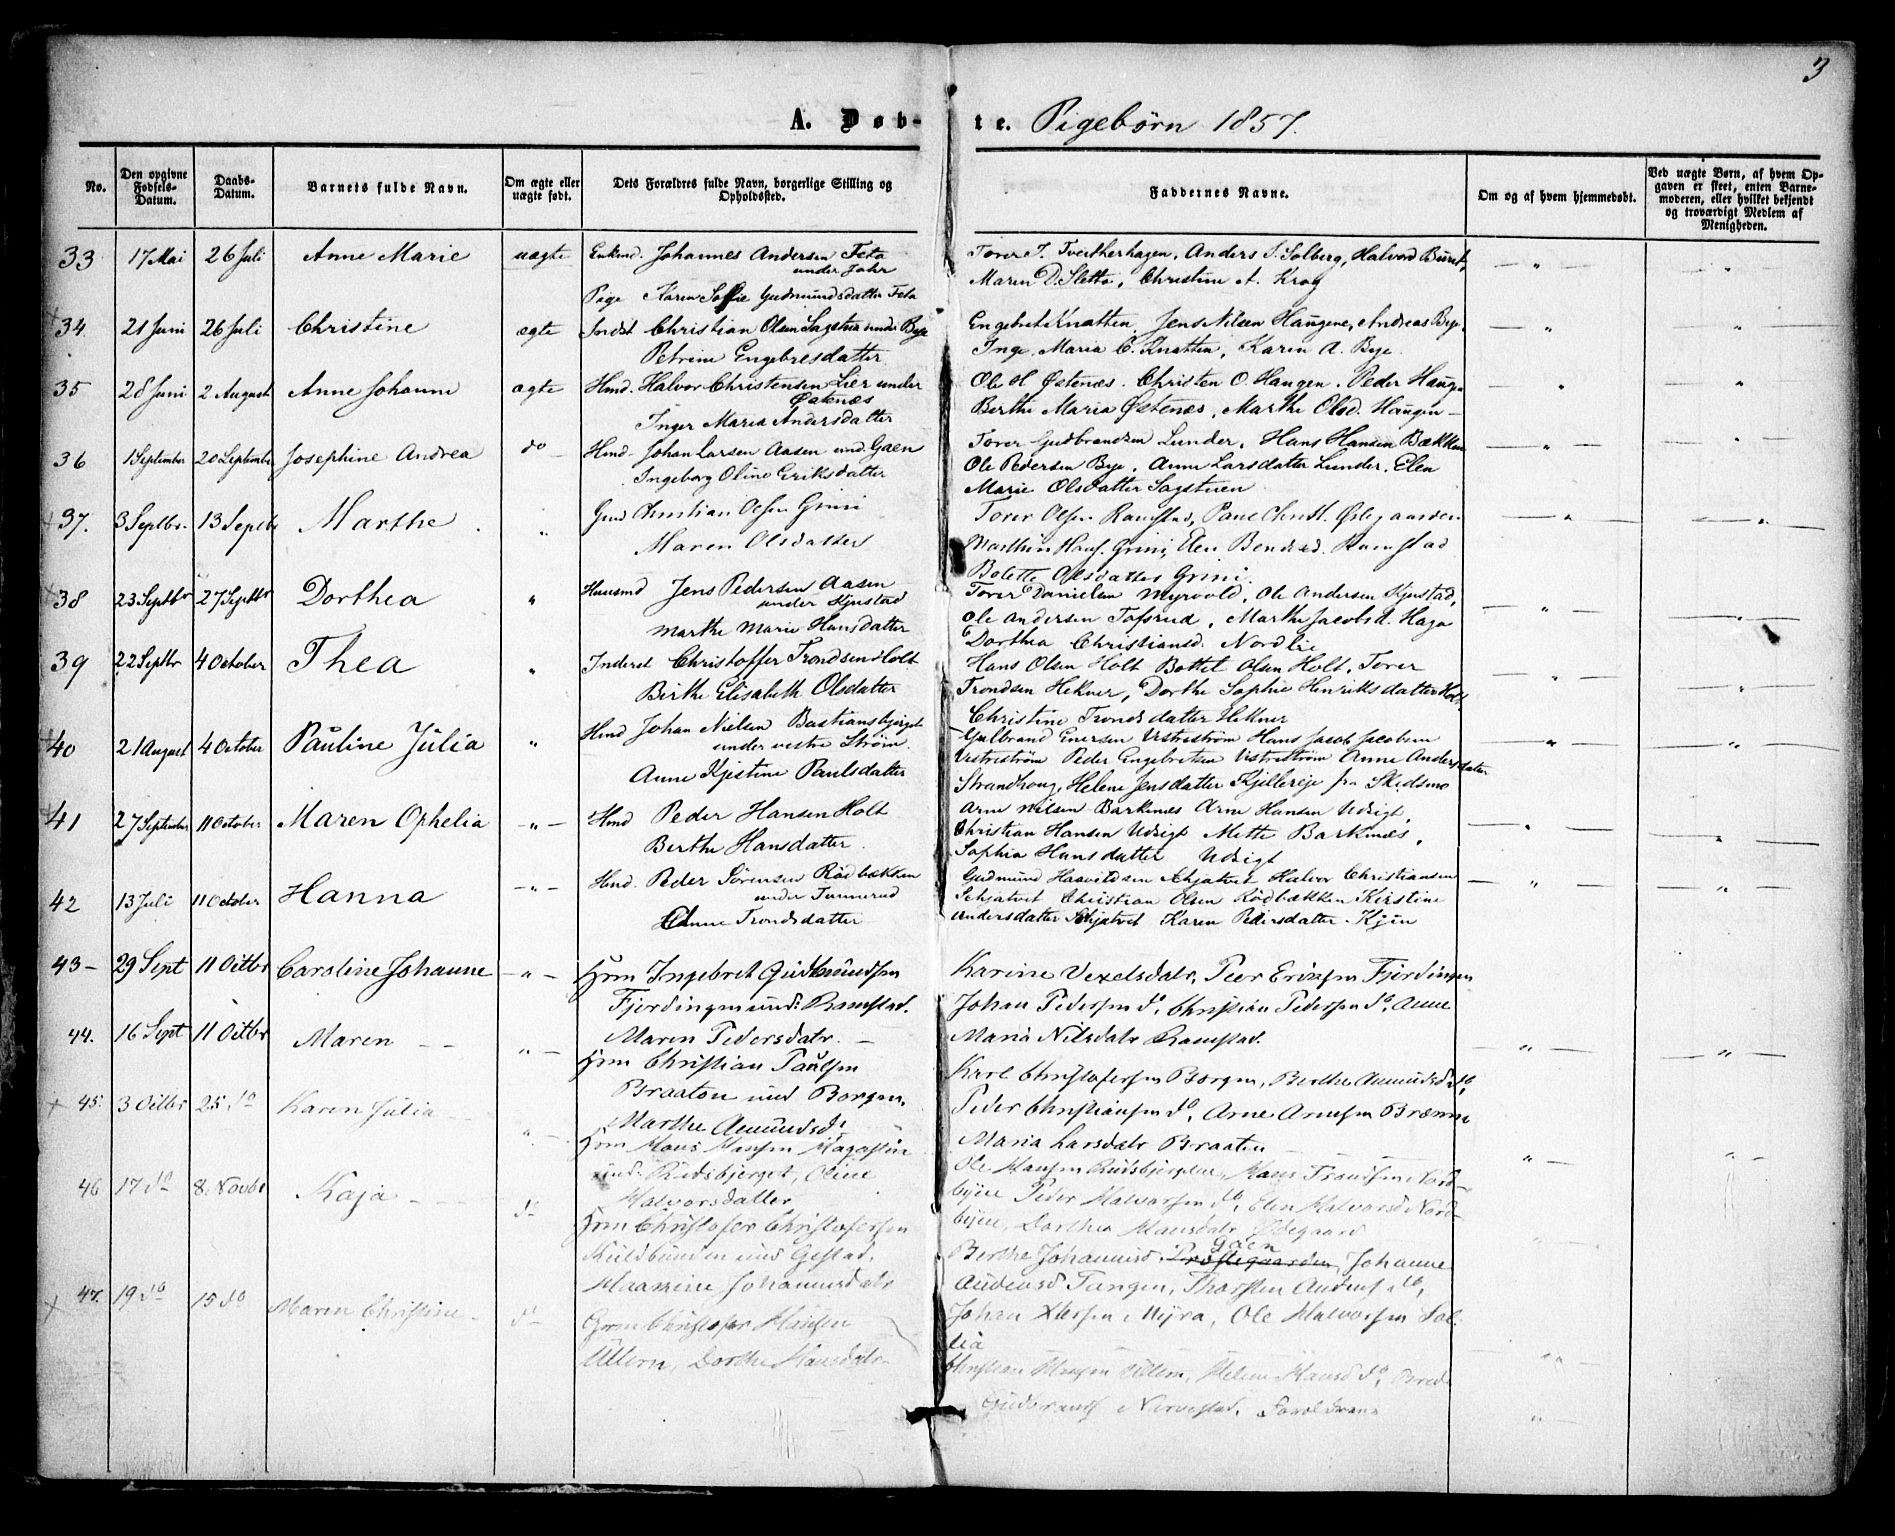 3
A. Døb- te. Pigebørn 1857.
No.
Den opgivne Fødsels-Datum.
Daabs-Datum.
Barnets fulde Navn.
Om ægte eller uægte født.
Dets Forældres fulde Navn, borgerlige Stilling og Opholdssted.
Faddernes Navne.
Om og af hvem hjemmedøbt.
Ved uægte Børn, af hvem Opgaven er skeet, enten Barnemoderen, eller hvilket bekjendt og troværdigt Medlem af Menigheden.
33 17 Mai 26 Juli Anne Marie uægte Enkmd. Johannes Andersen Feta
under Fohr
Pige Karen Sofie Gudmundsdatter Feta
Torer T. Tveitherhagen, Anders S. Solberg, Halvord
Maren D. Sletta, Christine A. Krog
34 21 Juni 26 Juli Christine ægte Indst Christian Olsen Sagstuen under Bye
Petrine Engebretsdatter
Engebret Knatten, Jens Nilsen Haugene, Andreas Bye
Inge Maria C. Knatten, Karen A. Bye.
35 28 Juni 2 August Anne Johanne ægte Hmd. Halvor Christensen Lier under
Østenæs
Inger Maria Andersdatter
Ole H Østenæs. Christen O. Haugen. Peder Haugen
Berthe Maria Østenæs, Marthe Olsd. Haugen
36 1 September 20 September Josephine Andrea do Hmd. Johan Larsen Aasen und. Gaen
Ingeborg Oline Eriksdatter
Torer Gudbrandsen Lunder, Hans Hansen Bækken
Ole Pedersen Bye, Anne Larsdatter Lunder, Elen
Marie Olsdatter Sagstuen
37. 3 Septbr. 13 Septbr Marthe " Gmd Christian Olsen Grini
Maren Olsdatter
Torer Olsen Ramstad, Paul Christ.
Marthin Hans. Grini, Elen Bendixd. Ramstad
Bolette Olsdatter Grini.
38 23 Septbr 27 Septbr Dorthea " Huusmd Jens Pedersen Aasen
under Kjustad
Marthe Marie Hansdatter
Torer Danielsen Myrvold, Ole Andersen Kjustad,
Ole Andersen Tofsrud, Marthe Jacobsd. Haga
Dorthea Christiansd. Nordlie
39 22 Septbr 4 October Thea " Inderst Christoffer Trondsen Holt
Birthe Elisabeth Olsdatter
Hans Olsen Holt Bottel Olsen Holt, Torer
Trondsen Hekner, Dorthe Sophie Henriksdatter Holt
Christine Trondsdatter Hekner
40 21 August 4 October Pauline Julia " Hmd Johan Nielsen Bastiansbjerget
under vestre Strøm.
Anne Kjestine Paulsdatter
Gulbrand Enersen Vestreström Hans Jacob Jacobsen
Vestreström Peder Engebretsen Vestreström Anne Andersdatter
Strandhoug, Helene Jensdatter Kjellereje fra Skedsmo
41 27 September 11 October Maren Ophelia " Hmd Peder Hansen Holt
Berthe Hansdatter
Arne Nilsen Barknes Arne Hansen Udsigt,
Christian Hansen Udsigt Mette Barknes,
Sophia Hansdatter Udsigt
42 13 Juli 11 October Hanna " Hmd. Peder Sörensen Rödbækken
under Tunnerud
Anne Trondsdatter
Gudmund Haavildsen Skjatvet Halvor Christiansen
Schjatvet Christian Olsen Rödbækken Kirstine
Andersdatter Schjatvet Karen Pedersdatter Kjun
43 29 Sept 11 Octbr Caroline Johanne " Hsm Ingebret Gudbrandsen
Fjordingen und: Ramstad.
Maren Pedersdatr.
Karine Vexelsdatr, Peer Ericksen Fjordingen
Johan Pedersen do, Christian Pedersen do, Anne
Maria Nilsdatr Ramstad.
44. 16 Sept 11 Octbr Maren " Hsm Christian Paulsen
Braaten und Borgen,
Marthe Amundsd.
Karl Christofersen Borgen, Berthe Amundsd do,
Peder Christiansen do, Arne Arnesen Brænne
Maria Larsdatr Braaten
45. 3 Octbr 25 do Karen Julia " Hsm Hans Hansen
und: Rudsbjerget, Oline
Halvorsdatter
Ole Hansen Rudsbjerget, Hans Trondsen Nord-
byen Peder Halvorsen do, Elen Halvorsd Nord-
byen, Dorthea Hansdatr Ødegaard
46 17 do 8 Novbr Kaja do Hsm Christofer Christofersen
und Gjestad,
Johannesdatr
Berthe Johannesd. Gaen Johanne
Audensd Tangen, Thorsten Audens do,
Johan Myra, Ole Halvorsen Sol-
lia
47. 19 do 15 do Maren Christine do Grm Christofer Hansen
Ullern, Dorthe Hansdatr
Christian Hansen Ullern, Helene Hansd do,
Gudbrands Nervestad,